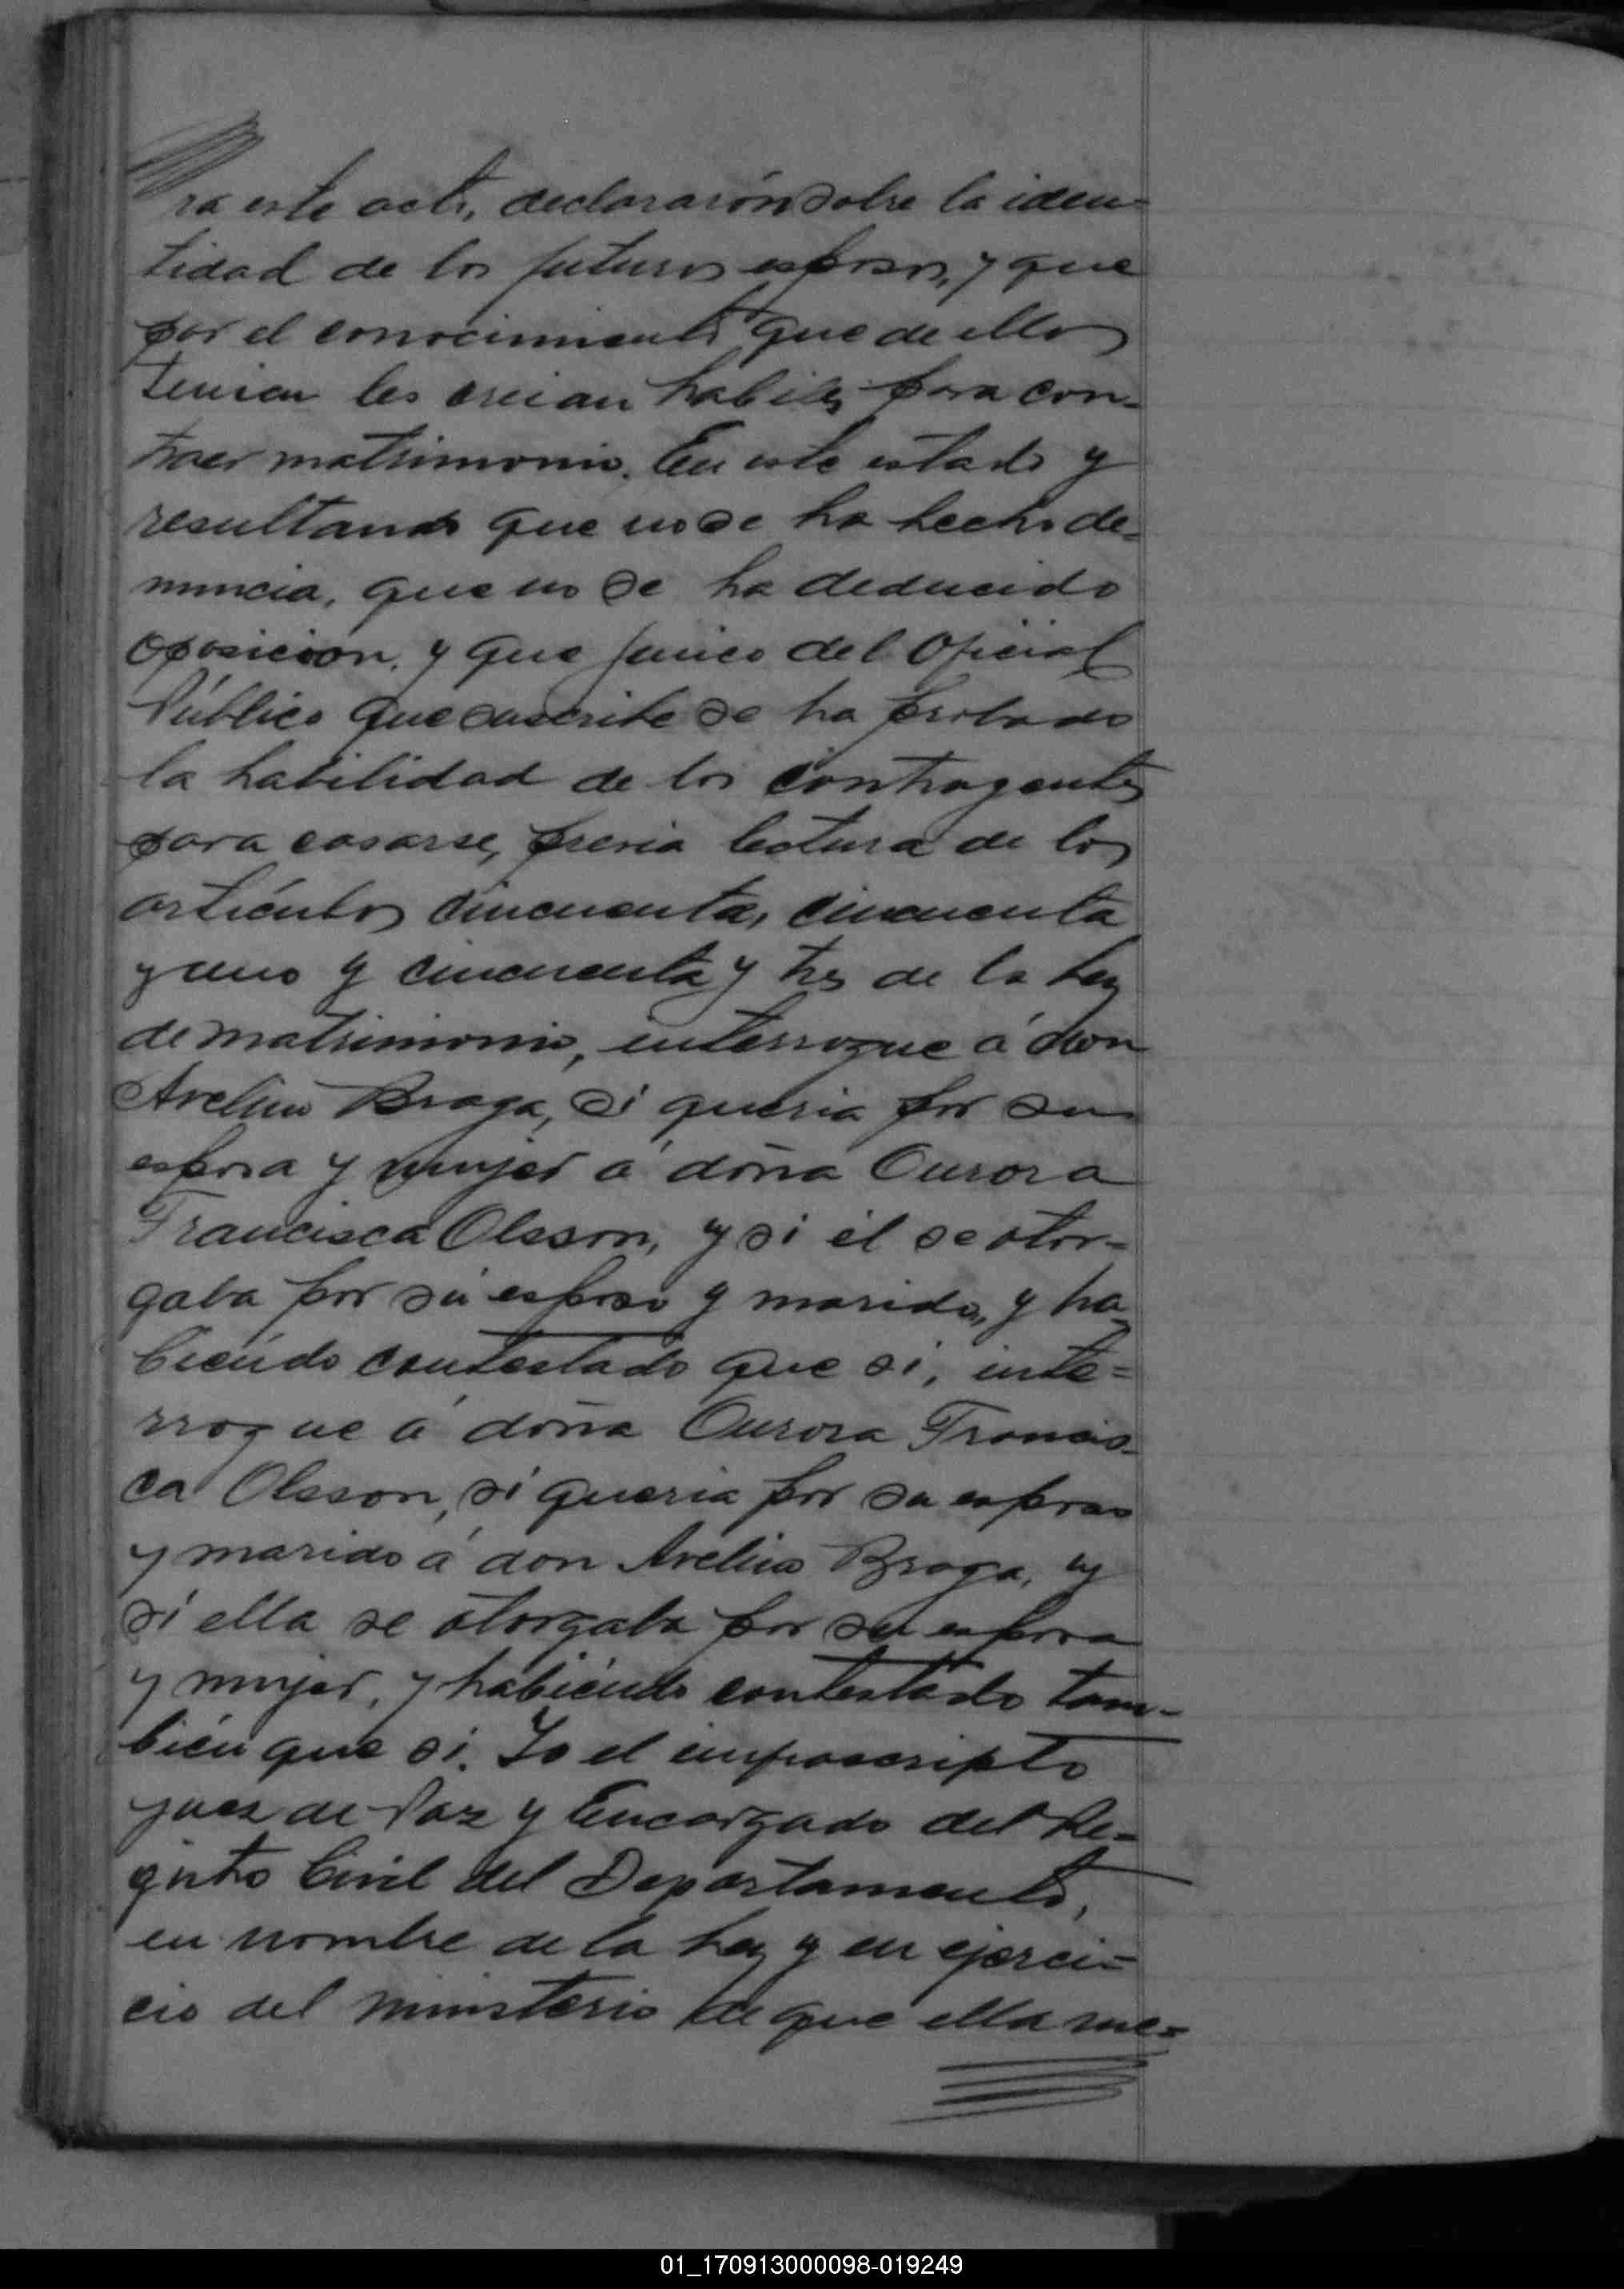 ra este acto, declararón sobre la iden=
tidad de los futuros esposos, y que
por el conocimiento que de ellos
tenian les creian habiles para con-
traer matrimonio. En este estado y
resultando que no se ha hecho de-
nuncia, que no se ha deducido
oposicion, y que juico del Oficial
Público que suscribe se ha probado
la habilidad de los contrayentes
para casarse, previa lectura de los
artículos cincuenta, cincuenta
y uno y cincuenta y tres de la Ley
de matrimonio, interrogue á don
Avelino Braga, si queria por su
esposa y mujer á doña Aurora
Francisca Olsson, y si él se otor=
gaba por su esposo y marido, y ha-
biendo contestado que si, inte=
rrogue á doña Aurora Francis-
ca Olsson, si queria por su esposo
y marido á don Avelino Braga, y
si ella se otorgaba por su esposa
y mujer, y habiéndo contestado tam-
bién que si. Yo el infrascripto
juez de Paz y Encargado del Re=
gistro Civil del Departamento,
en nombre de la Ley y en ejerci=
cio del ministerio de que ella me=
01_170913000098-019249